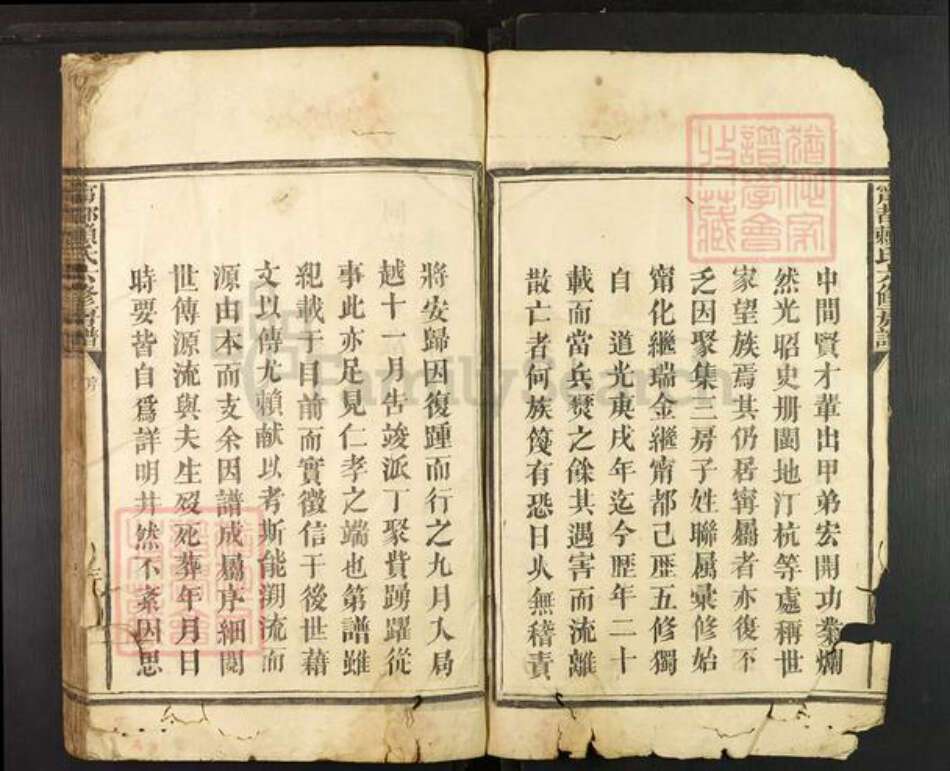 甯都賴氏六修房譜
中間賢才輩出甲第宏開功業爛
然光昭史册閩地汀杭等處稱世
家望族焉其仍居甯屬者亦復不
乏因聚集三房子姓聯属彙修始
甯化繼瑞金繼甯都已歷五修獨
自 道光庚戌年迄今歷年二十
載而當兵燹之餘其遇害而流離
散亡者何族篾有恐日乆無稽責
將安歸因復踵而行之九月入局
越十一月告竣派丁聚貲踴躍從
事此亦足見仁孝之端也第譜雖
紀載于目前而實徵信于後世藉
文以傳尤賴献以考斯能溯流而
源由本而支余因譜成屬序細閱
世傳源流與夫生殁死葬年月日
時要皆自爲詳明井然不紊因思
甯都賴氏六修房譜
猶他家譜學會收藏
FamilySearch